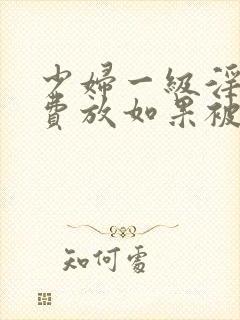 少婦一級淫
費放如果被
知何處